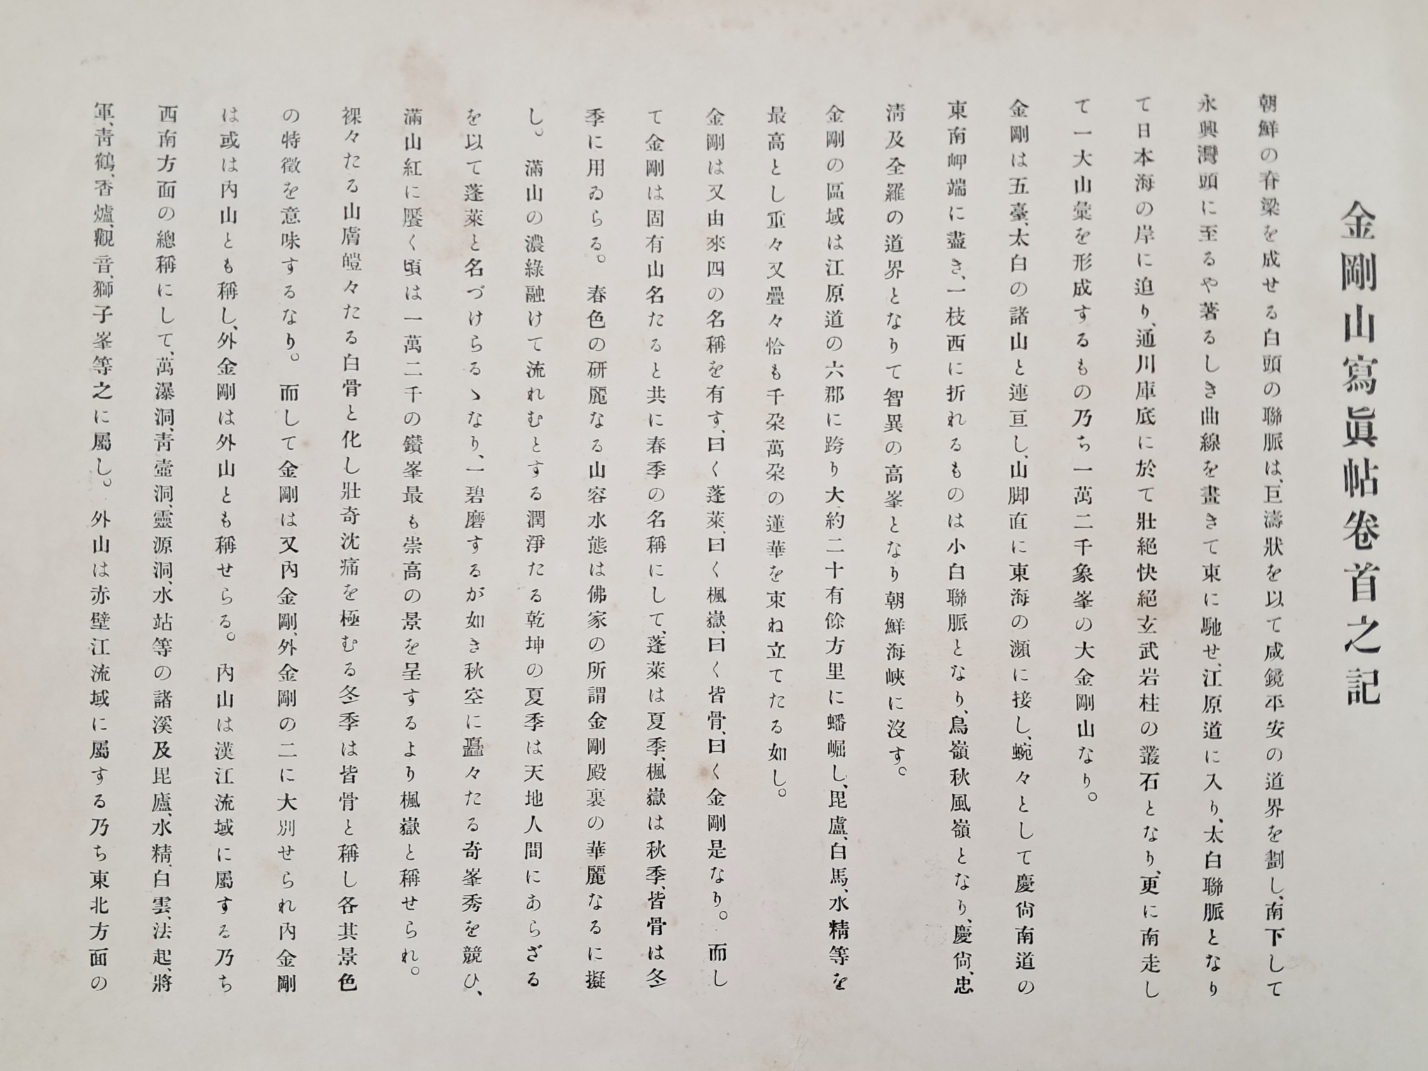 金剛山寫眞帖卷首之記
朝鮮の脊梁を成せる白頭の聯脈は、巨濤狀を以て咸鏡平安の道界を劃し、南下して
永興灣頭に至るや著るしき曲線を畫きて東に馳せ、江原道に入り、太白聯脈となり
て日本海の岸に迫り、通川庫底に於て壯絕快絕玄武岩柱の叢石となり、更に南走し
て一大山彙を形成するもの乃ち一萬二千象峯の大金剛山なり。
金剛は五臺、太白の諸山と連亘し、山脚直に東海の瀕に接し、蜿々として慶尙南道の
東南岬端に盡き、一枝西に折れるものは小白聯脈となり、鳥嶺秋風嶺となり、慶尙、忠
淸及全羅の道界となりて智異の高峯となり朝鮮海峽に沒す。
金剛の區域は江原道の六郡に跨り大約二十有餘方里に蟠崛し、毘盧、白馬、水精等を
最高とし重々又疊々恰も千朶萬朶の蓮華を束ね立てたる如し。
金剛は又由來四の名稱を有す、曰く蓬萊、曰く楓嶽、曰く皆骨、曰く金剛是なり。而し
て金剛は固有山名たると共に春季の名稱にして、蓬萊は夏季、楓嶽は秋季、皆骨は冬
季に用ゐらる。春色の研麗なる山容水態は佛家の所謂金剛殿裏の華麗なるに擬
し。滿山の濃綠融けて流れむとする潤淨たる乾坤の夏季は天地人間にあらざる
を以て蓬萊と名づけらるゝなり、一碧磨するが如き秋空に矗々たる奇峯秀を競ひ、
滿山紅に饜く頃は一萬二千の鑽峯最も崇高の景を呈するより楓嶽と稱せられ。
裸々たる山膚皚々たる白骨と化し壯奇沈痛を極むる冬季は皆骨と稱し各其景色
の特徵を意味するなり。而して金剛は又內金剛、外金剛の二に大別せられ內金剛
は或は內山とも稱し、外金剛は外山とも稱せらる。內山は漢江流域に屬する乃ち
西南方面の總稱にして、萬瀑洞、靑壺洞、靈源洞、水站等の諸溪及毘廬、水精、白雲、法起、將
軍、靑鶴、香爐、觀音、獅子峯等之に屬し。外山は赤壁江流域に屬する乃ち東北方面の